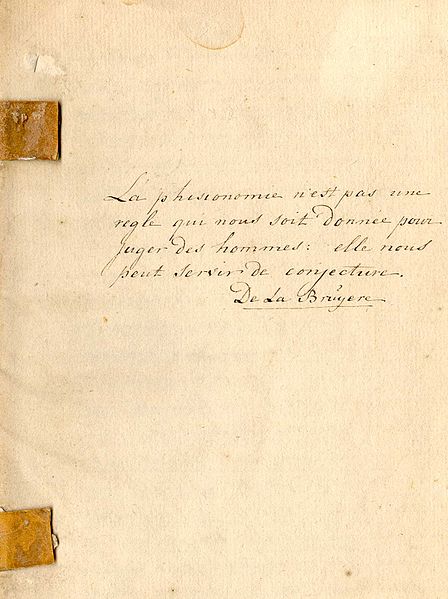 La phisionomie n'est pas une
regle qui nous soit donnee pour
juger des hommes: elle nous
peut servir de conjecture.
De La Bruyere